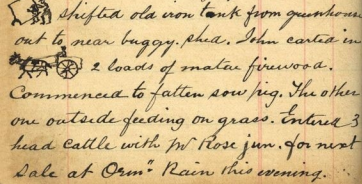 shifted old iron tank from greenhouse
out to near buggy. shed. John carted in
2 loads of matai firewood.
Commenced to fatten sow pig. The other
one outside feeding on grass. Entered 3
head cattle with W Rose jun. for next
Sale at Rain this evening.